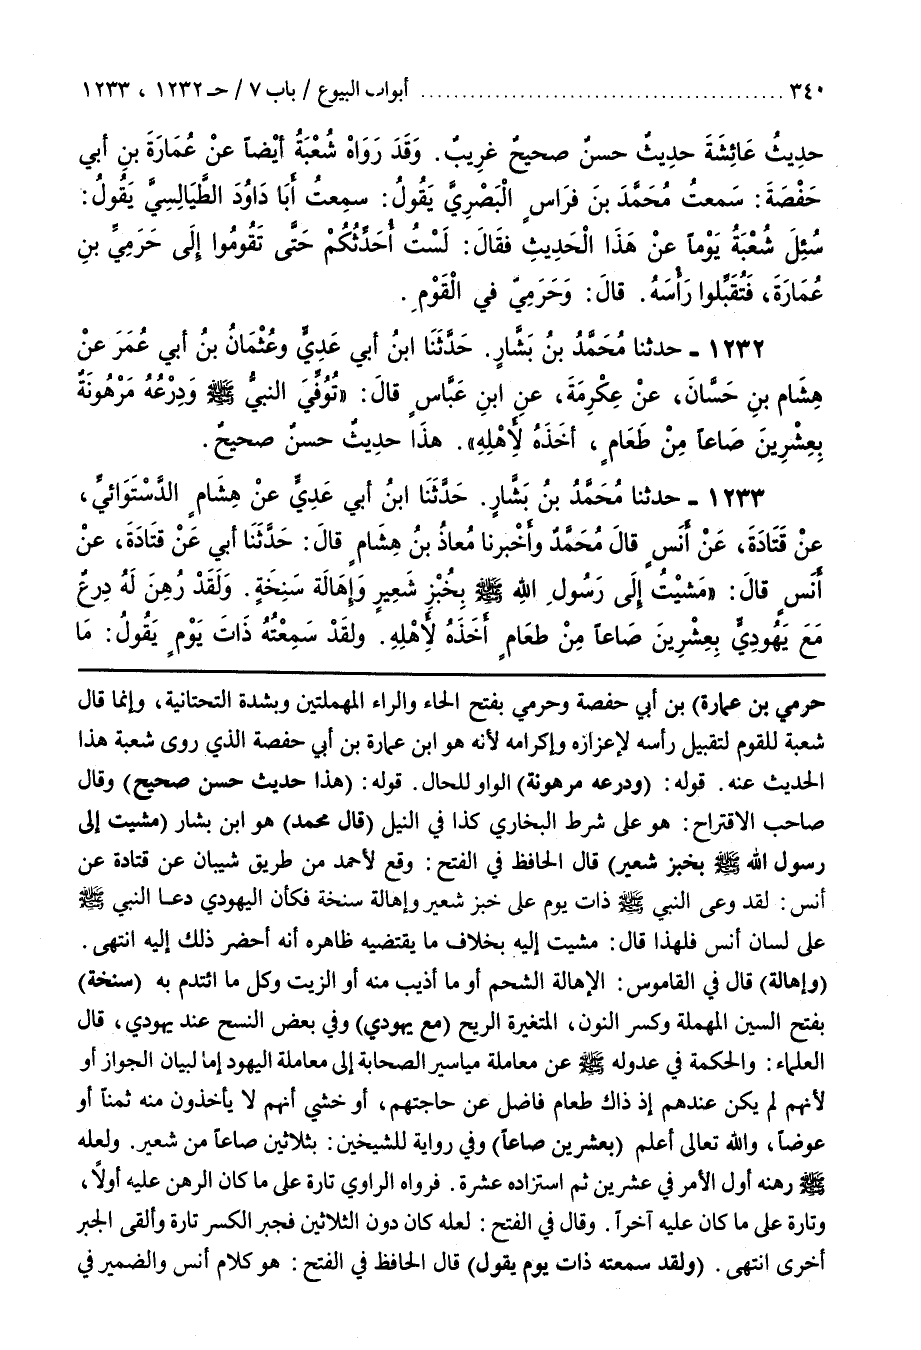 ٣٤٠ ........................................ أبواب البيوع / باب ٧ / حـ ١٢٣٢ ، ١٢٣٣
حديثُ عَائِشَةَ حديثٌ حسنٌ صحيحٌ غريبٌ. وَقَد رَوَاهُ شُعْبَةُ أيْضاً عنْ عُمَارَةَ بنِ أبي
حَفْصَةَ: سَمعتُ مُحَمَّدَ بنَ فرَاسٍ الْبَصْرِيَّ يَقُولُ: سمِعتُ أبَا دَاوُدَ الطَّيَالِسِيَّ يَقُولُ:
سُئِلَ شُعْبَةُ يَوْماً عنْ هَذَا الْحَديثِ فقَالَ: لَسْتُ أُحَدِّثُكُمْ حَتَّى تَقُومُوا إلَى حَرَمِيِّ بنِ
عُمَارَةَ، فَتُقَبِّلُوا رَأْسَهُ. قالَ: وَحَرَمِيّ في الْقَوْمِ.
١٢٣٢ ـ حدثنا مُحَمَّدُ بنُ بَشَّارٍ. حَدَّثَنَا ابنُ أبي عَدِيٍّ وعُثْمَانُ بنُ أبي عُمَرَ عنْ
هِشَام بنِ حَسَّانَ، عنْ عِكْرِمَةَ، عنِ ابنِ عَبَّاسٍ قالَ: «تُوُفِّيَ النبيُّ ﷺ وَدِرْعُهُ مَرْهُونَةٌ
بِعِشْرِينَ صَاعاً مِنْ طَعَامٍ، أخَذَهُ لأَهْلِهِ». هذَا حديثٌ حسنٌ صحيحٌ.
١٢٣٣ ـ حدثنا مُحَمَّدُ بنُ بَشَّارٍ. حَدَّثَنَا ابنُ أبي عَدِيٍّ عنْ هِشَامٍ الدَّسْتَوَائيِّ،
عنْ قَتَادَةَ، عَنْ أنَسٍ قالَ مُحَمَّدٌ وأخْبرنا مُعاذُ بنُ هِشَامٍ قالَ: حَدَّثَنَا أبي عَنْ قتَادَةَ، عنْ
أنَسٍ قالَ: «مَشَيْتُ إلَى رَسُولِ اللهِ ﷺ بِخُبْزِ شَعِيرٍ وَإهَالَة سَنِخَةٍ. وَلَقَدْ رُهِنَ لَهُ دِرعٌ
مَعَ يَهُودِيٍّ بِعِشْرِينَ صَاعاً مِنْ طعَامٍ أخَذَهُ لأَهْلِهِ. ولقَدْ سَمِعْتُهُ ذَاتَ يَوْمٍ يَقُولُ: مَا
حرمي بن عمارة) بن أبي حفصة وحرمي بفتح الحاء والراء المهملتين وبشدة التحتانية، وإنما قال
شعبة للقوم لتقبيل رأسه لإعزازه وإكرامه لأنه هو ابن عمارة بن أبي حفصة الذي روى شعبة هذا
الحديث عنه. قوله: (ودرعه مرهونة) الواو للحال. قوله: (هذا حديث حسن صحيح) وقال
صاحب الاقتراح: هو على شرط البخاري كذا في النيل (قال محمد) هو ابن بشار (مشيت إلى
رسول الله ﷺ بخبز شعير) قال الحافظ في الفتح: وقع لأحمد من طريق شيبان عن قتادة عن
أنس: لقد وعى النبي ﷺ ذات يوم على خبز شعير وإهالة سنخة فكأن اليهودي دعـا النبي ﷺ
على لسان أنس فلهذا قال: مشيت إليه بخلاف ما يقتضيه ظاهره أنه أحضر ذلك إليه انتهى.
(وإهالة) قال في القاموس: الإهالة الشحم أو ما أذيب منه أو الزيت وكل ما ائتدم به (سنخة)
بفتح السين المهملة وكسر النون، المتغيرة الريح (مع يهودي) وفي بعض النسح عند يهودي، قال
العلماء: والحكمة في عدوله ﷺ عن معاملة مياسير الصحابة إلى معاملة اليهود إما لبيان الجواز أو
لأنهم لم يكن عندهم إذ ذاك طعام فاضل عن حاجتهم، أو خشي أنهم لا يأخذون منه ثمناً أو
عوضاً، والله تعالى أعلم (بعشرين صاعاً) وفي رواية للشيخين: بثلاثين صاعاً من شعير. ولعله
ﷺ رهنه أول الأمر في عشرين ثم استزاده عشرة. فرواه الراوي تارة على ما كان الرهن عليه أولاً،
وتارة على ما كان عليه آخراً. وقال في الفتح: لعله كان دون الثلاثين فجبر الكسر تارة وألقى الجبر
أخرى انتهى. (ولقد سمعته ذات يوم يقول) قال الحافظ في الفتح: هو كلام أنس والضمير في